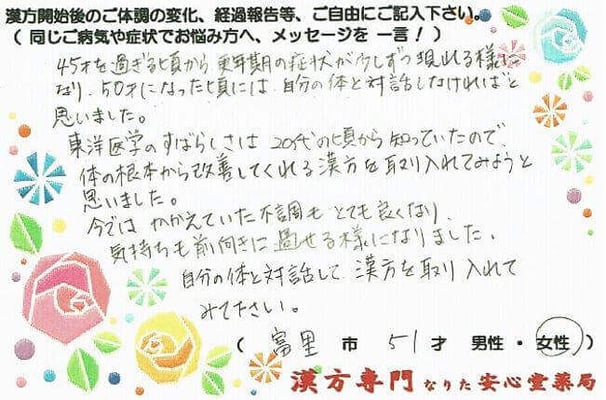 漢方開始後のご体調の変化、経過報告等、ご自由にご記入下さい。
（同じご病気や症状でお悩み方へ、メッセージを 一言！）
45才を過ぎる頃から 更年期の症状が少しずつ現れる様に
なり、50才になった頃には、自分の体と対話しなければと
思いました。
東洋医学のすばらしさは 20代の頃から知っていたので、
体の根本から改善してくれる漢方を取り入れてみようと
思いました。
今では かかえていた不調も とても良くなり、
気持ちも前向きに過せる様になりました。
自分の体と対話して 漢方を取り入れて
みて下さい。
（ 富里 市 51 才 男性・女性）
漢方専門 なりた 安心堂薬局